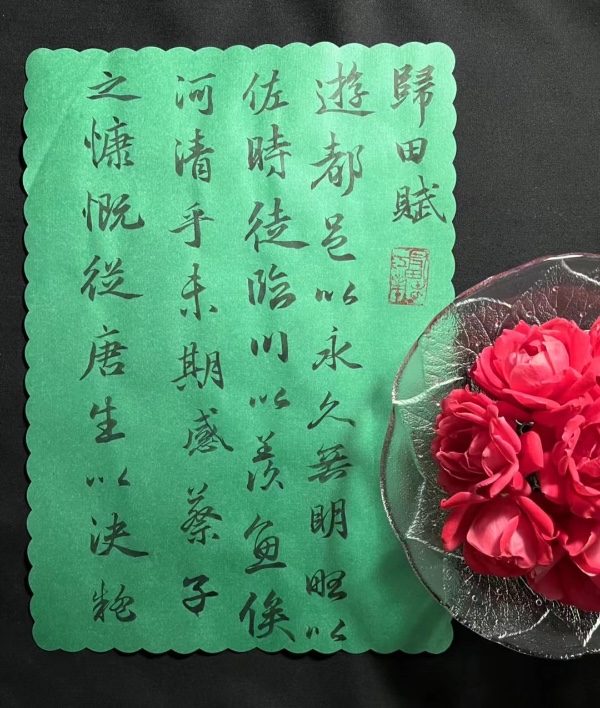 歸田賦
遊都邑以永久無明略以
佐時徒臨川以羨魚俟
河清乎未期感蔡子
之慷慨從唐生以決疑